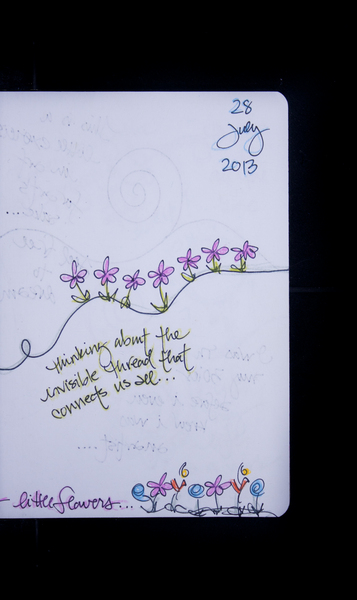 28
July
2013
thinking about the
invisible thread that
connects us all...
- little flowers...